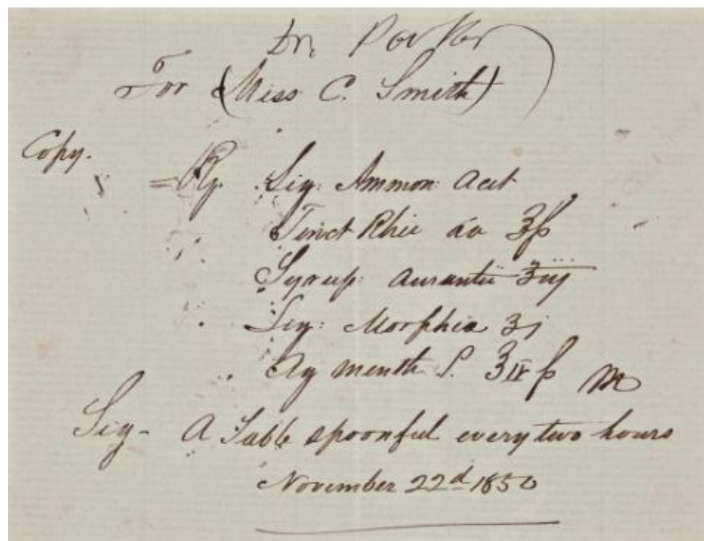 Dr. Parker
For (Miss C. Smith)
Copy.
Rx. Liq: Ammon: Acet
Tinct Rhei āa ʒſs
Syrup: Aurantii ʒiij
Liq: Morphia ʒj
Aq menth P. ʒiv ſs M
Sig - A Table spoonful every two hours
November 22d 1850